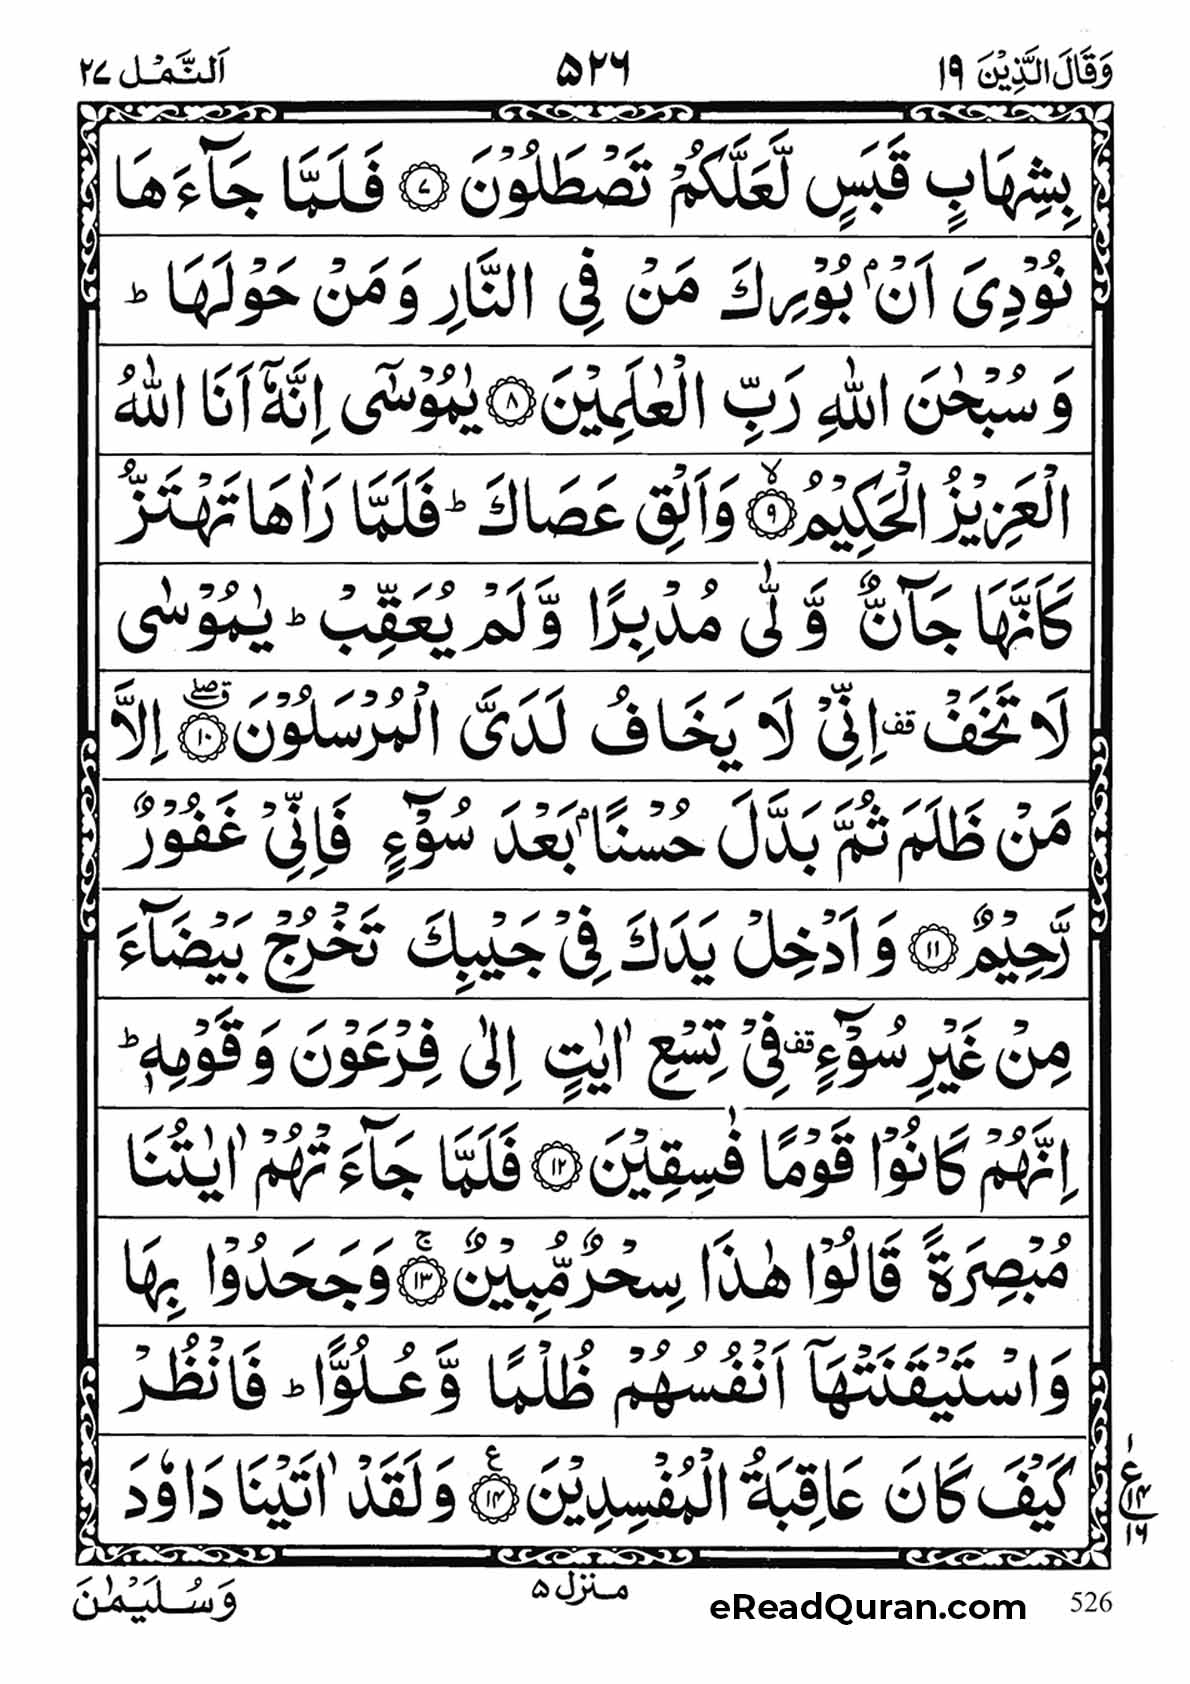 وَقَالَ الَّذِيْنَ ١٩ ۵۲۶ اَلنَّمْل ۲۷
بِشِهَابٍ قَبَسٍ لَّعَلَّكُمْ تَصْطَلُوْنَ ﴿۷﴾ فَلَمَّا جَآءَهَا
نُوْدِیَ اَنْۢ بُوْرِكَ مَنْ فِی النَّارِ وَمَنْ حَوْلَهَا ؕ
وَ سُبْحٰنَ اللّٰهِ رَبِّ الْعٰلَمِيْنَ ﴿۸﴾ يٰمُوْسٰۤی اِنَّهٗۤ اَنَا اللّٰهُ
الْعَزِيْزُ الْحَكِيْمُ ﴿۹﴾ۙ وَاَلْقِ عَصَاكَ ؕ فَلَمَّا رَاٰهَا تَهْتَزُّ
كَاَنَّهَا جَآنٌّ وَّلّٰی مُدْبِرًا وَّلَمْ يُعَقِّبْ ؕ يٰمُوْسٰی
لَا تَخَفْ ۫ اِنِّیْ لَا يَخَافُ لَدَیَّ الْمُرْسَلُوْنَ ﴿۱۰﴾ۗۖ اِلَّا
مَنْ ظَلَمَ ثُمَّ بَدَّلَ حُسْنًۢا بَعْدَ سُوْٓءٍ فَاِنِّیْ غَفُوْرٌ
رَّحِيْمٌ ﴿۱۱﴾ وَ اَدْخِلْ يَدَكَ فِیْ جَيْبِكَ تَخْرُجْ بَيْضَآءَ
مِنْ غَيْرِ سُوْٓءٍ ۫ فِیْ تِسْعِ اٰيٰتٍ اِلٰی فِرْعَوْنَ وَ قَوْمِهٖ ؕ
اِنَّهُمْ كَانُوْا قَوْمًا فٰسِقِيْنَ ﴿۱۲﴾ فَلَمَّا جَآءَتْهُمْ اٰيٰتُنَا
مُبْصِرَةً قَالُوْا هٰذَا سِحْرٌ مُّبِيْنٌ ﴿۱۳﴾ۚ وَجَحَدُوْا بِهَا
وَاسْتَيْقَنَتْهَاۤ اَنْفُسُهُمْ ظُلْمًا وَّعُلُوًّا ؕ فَانْظُرْ
كَيْفَ كَانَ عَاقِبَةُ الْمُفْسِدِيْنَ ﴿۱۴﴾ ع وَلَقَدْ اٰتَيْنَا دَاوٗدَ
۱ ع ۱۴ ۱۶
منزل ۵
وَ سُلَيْمٰنَ
eReadQuran.com
526